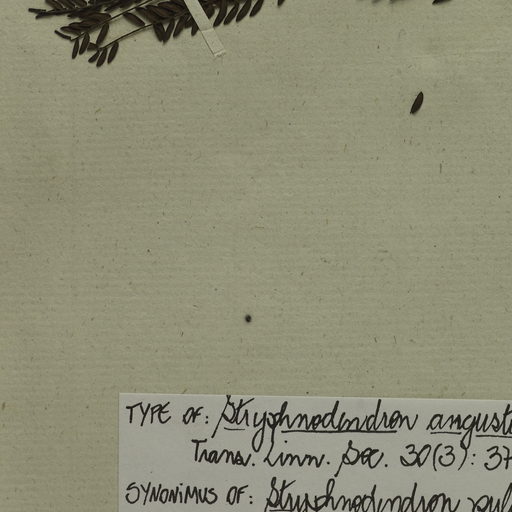 TYPE OF: Stryphnodendron angust
Trans. Linn. Soc. 30(3): 37
SYNONIMUS OF: Stryphnodendron pul